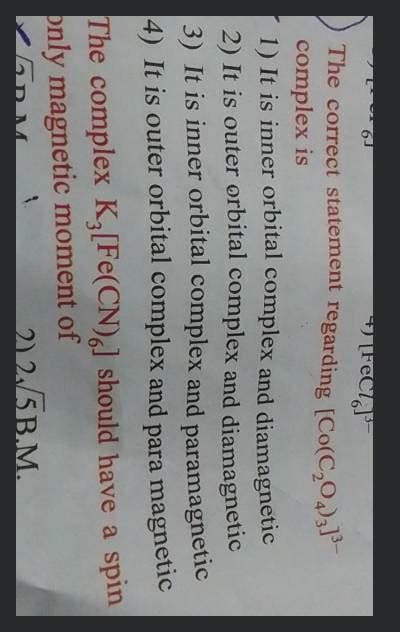 4) [FeCl₆]³⁻
The correct statement regarding [Co(C₂O₄)₃]³⁻
complex is
1) It is inner orbital complex and diamagnetic
2) It is outer orbital complex and diamagnetic
3) It is inner orbital complex and paramagnetic
4) It is outer orbital complex and para magnetic
The complex K₃[Fe(CN)₆] should have a spin
only magnetic moment of
2) 2√5 B.M.